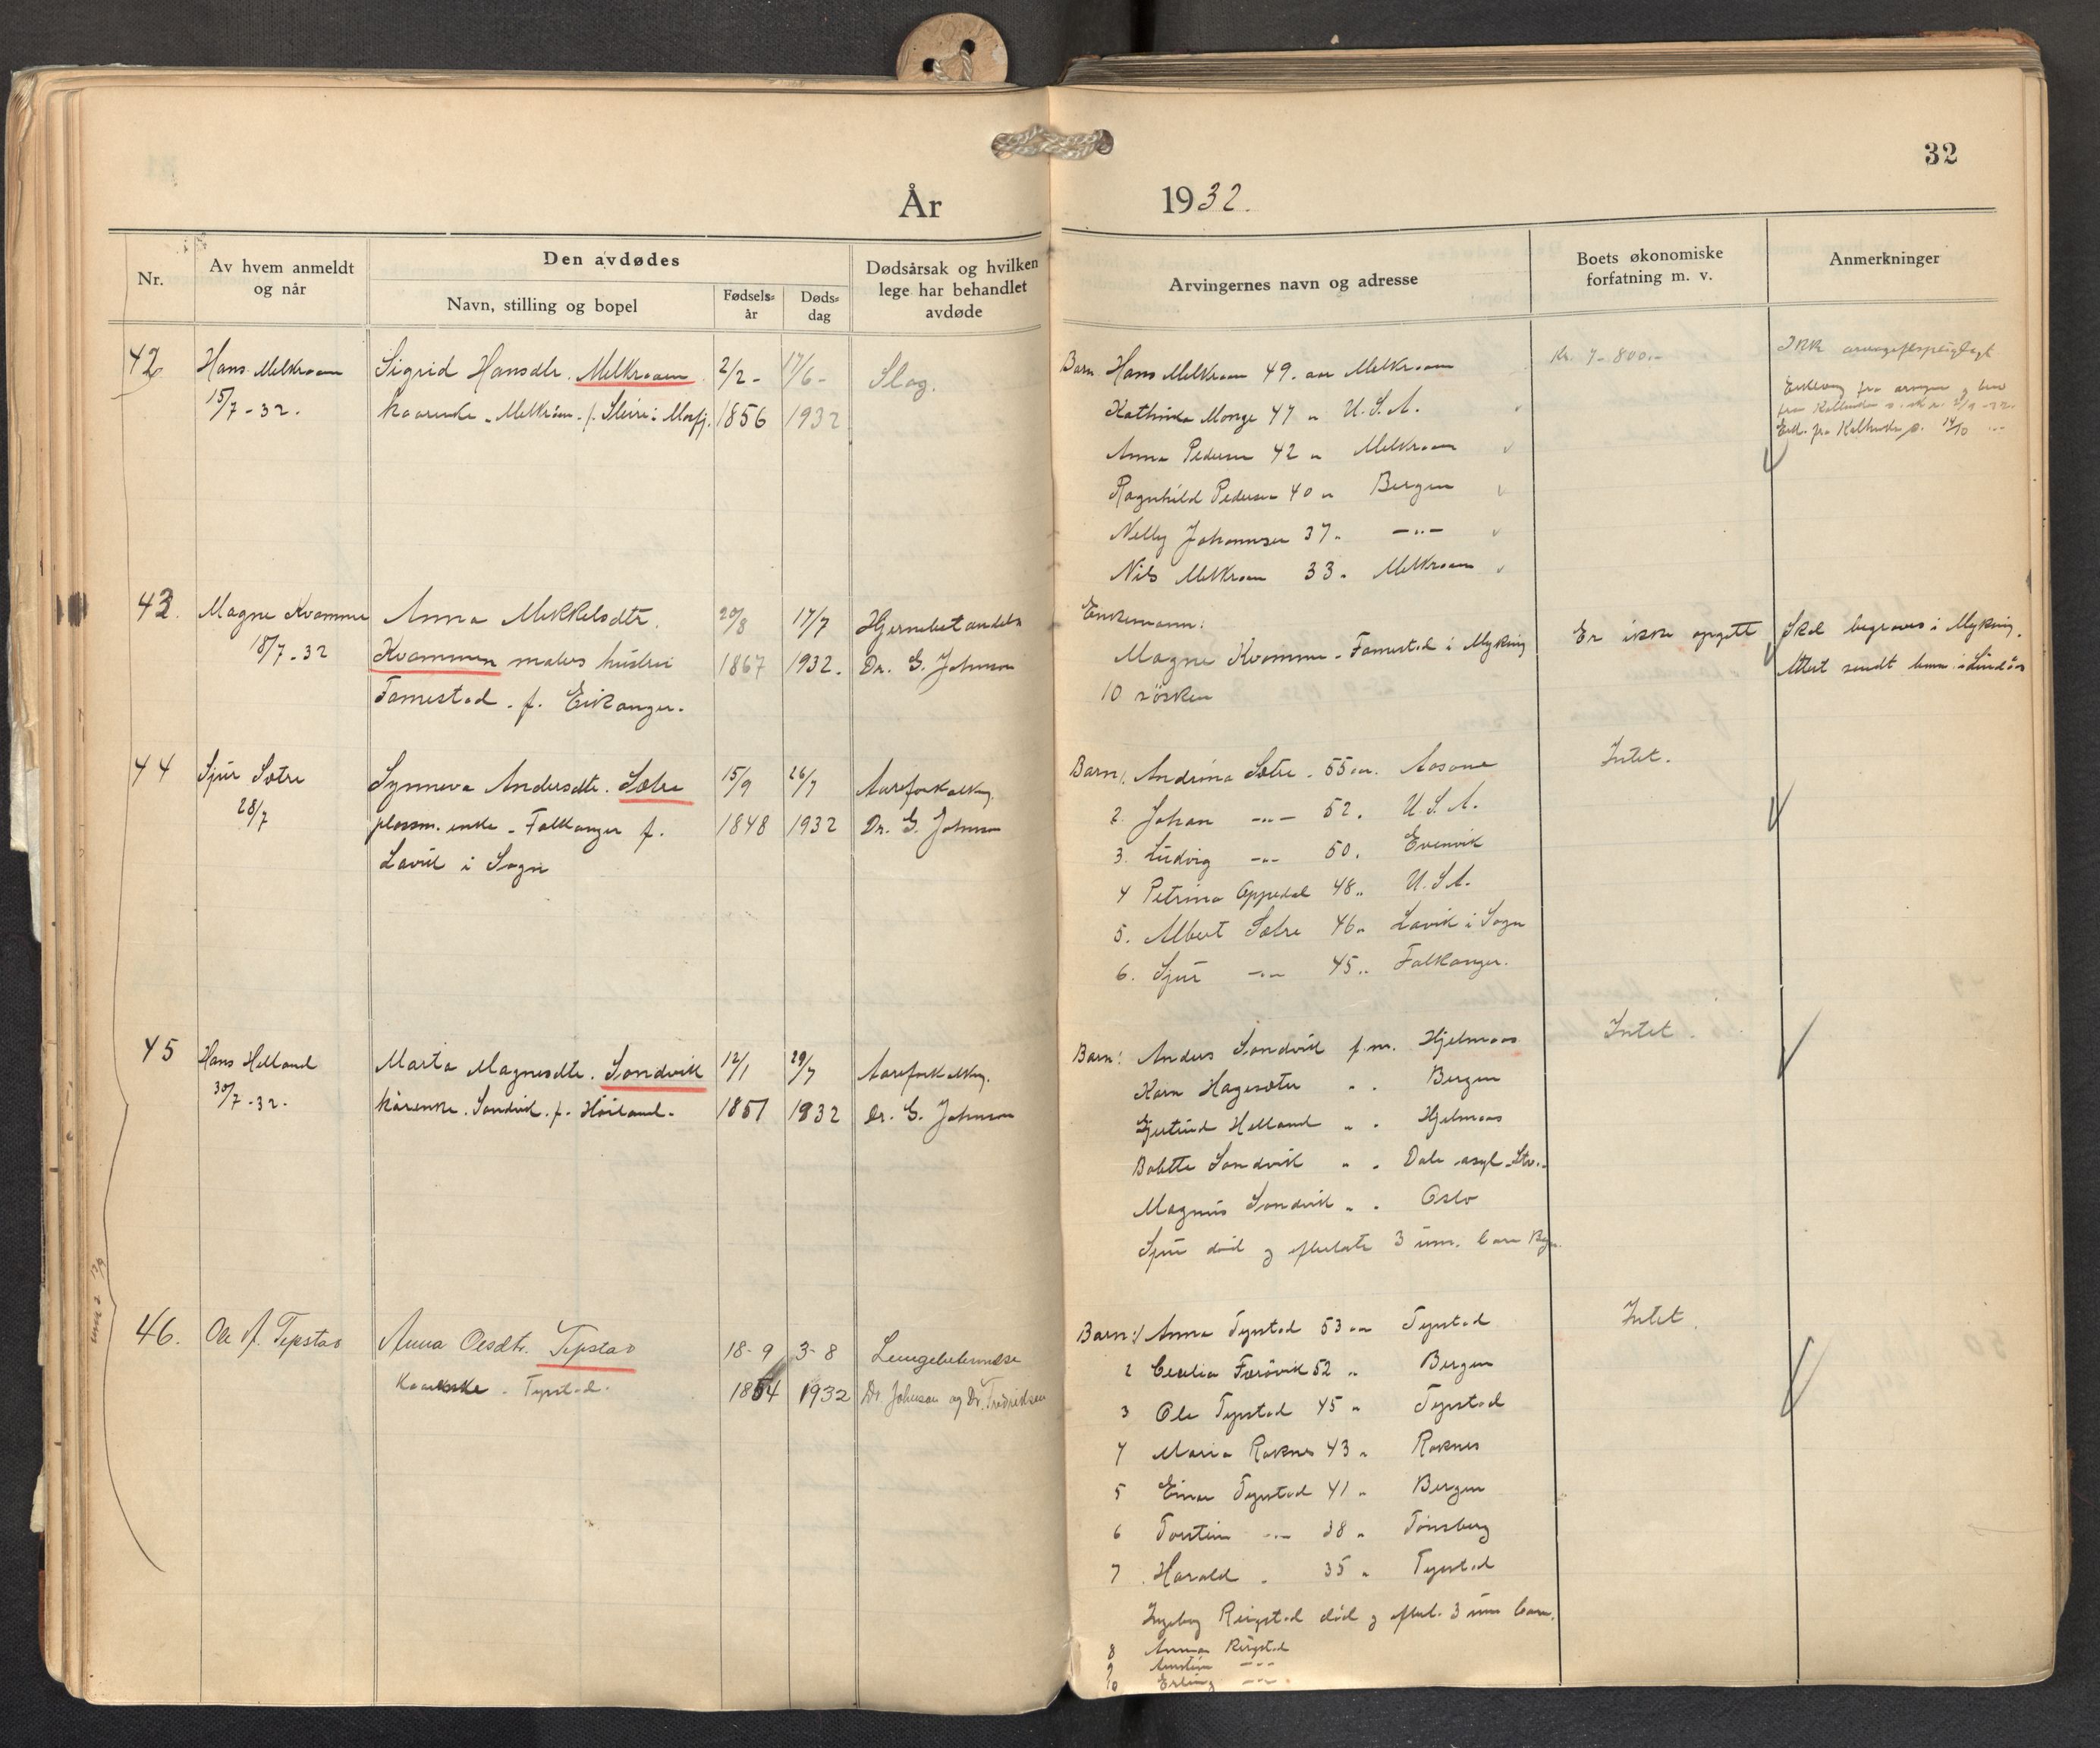 32
År 1932.
Nr.
Av hvem anmeldt
og når
Den avdødes
Navn, stilling og bopel
Fødsels-
år
Døds-
dag
Dødsårsak og hvilken
lege har behandlet
avdøde
Arvingernes navn og adresse
Boets økonomiske
forfatning m. v.
Anmerkninger
42
Hans Melkraaen
15/7-32.
Sigrid Hansdtr. Melkraaen
kaarenke - Melkråen - f.
2/2 -
1856
17/6 -
1932
Slag.
Barn. Hans Melkraaen 49. aar Melkraaen
Kathinka Monge 47 " U.S.A.
Anna Pedersen 42 " Melkraaen
Ragnhild Pedersen 40 " Bergen
Nelly Johannesen 37 " -"-
Nils Melkraaen 33 " Melkraaen
Kr. 7-800.-
43.
Magne Kvamme
18/7-32
Anna Mikkelsdtr.
Kvammen malers hustru
Famestad - f. Eikanger.
20/8
1867
17/7
1932.
Hjernebetændelse
Dr. G. Johnson
Enkemann:
Magne Kvamme - Famestad i Myking
10 søsken
Er ikke opgitt
Skal begraves i Myking.
Attest sendt lensm. i Lindås
44
Sjur Sætre
28/7
Synneva Andersdtr. Sætre
plassm. enke - Falkanger f.
Lavik i Sogn
15/9
1848
26/7
1932
Aareforkalkng.
Dr. G. Johnson
Barn 1. Andrina Sætre - 55 aar. Aasane
2. Johan -"- 52. U.S.A.
3. Ludvig -"- 50. Evenvik
4 Petrina Oppedal 48 " U.S.A.
5. Albert Sætre 46 " Lavik i Sogn
6. Sjur -"- 45 " Falkanger.
Intet.
45
Hans Helland
30/7-32.
Marta Magnesdtr. Sandvik
kårenke. Sandvik. f. Høiland.
12/1
1851
29/7
1932
Aareforkalkng.
Dr. G. Johnson
Barn: Anders Sandvik f.m. Hjelmaas
Kara Hagesæter " . Bergen
Gjertrud Helland " . Hjelmaas
Bolette Sandvik " . Dale asyl
Magnus Sandvik " . Oslo
Sjur død og efterlate 3 um. barn
Intet.
46.
Ole A. Tepstad
Anna Olesdtr. Tepstad
kaarenke - Tepstad.
18-9
1854
3-8
1932
Lungebetennelse
Dr. Johnson og Dr. Fredriksen
Barn: 1 Anna Tepstad 53 aar Tepstad
2 Cecilia Færøvik 52 " Bergen
3 Ole Tepstad 45 " Tepstad
4 Maria Raknes 43 " Raknes
5 Einar Tepstad 41 " Bergen
6 Torstein -"- 38 " Tønsberg
7 Harald " 35 " Tepstad
Ingeborg død og efterl. 3 um barn.
8 Anna
9 -"-
10 Erling -"-
Intet.